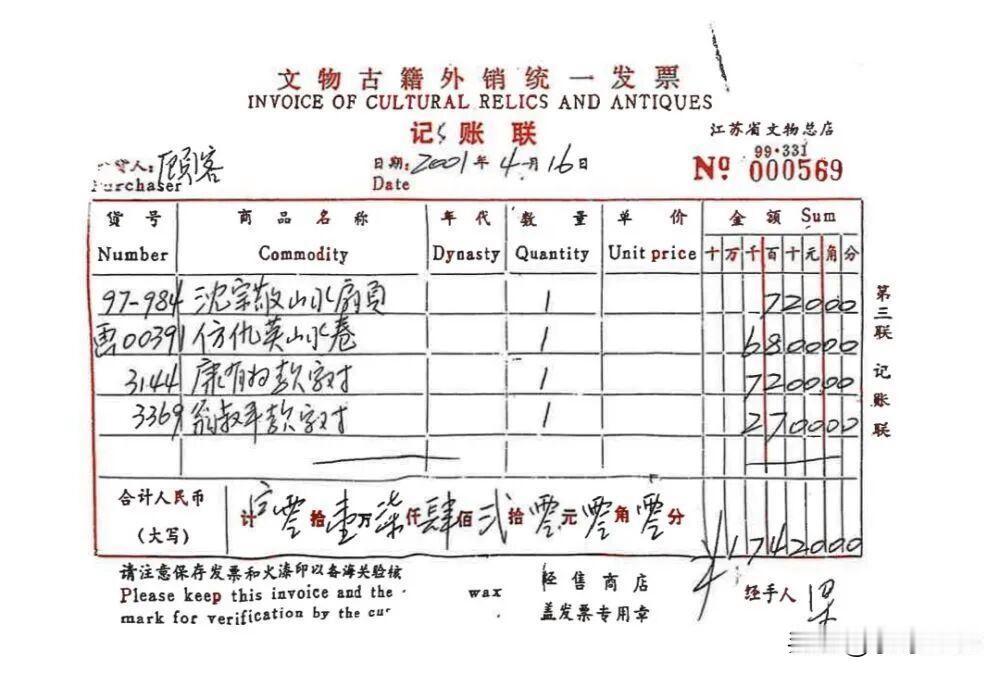 文物古籍外销统一发票
INVOICE OF CULTURAL RELICS AND ANTIQUES
记账联
江苏省文物总店
99·331
Nº 000569
货人：顾客
Purchaser
日期：2001年4月16日
Date
货号 商品名称 年代 数量 单价 金额 Sum
Number Commodity Dynasty Quantity Unit price 十万千百十元角分
97-984 沈宗敬山水扇页 1 72000
画00391 仿仇英山水卷 1 680000
3144 康有为款字对 1 720000
3369 翁叔平款字对 1 270000
合计人民币
（大写）
计 零拾壹万柒仟肆佰贰拾零元零角零分
¥1742000
请注意保存发票和火漆印以备海关验核
Please keep this invoice and the wax
mark for verification by the cus
经售商店
盖发票专用章
经手人
第三联 记账联